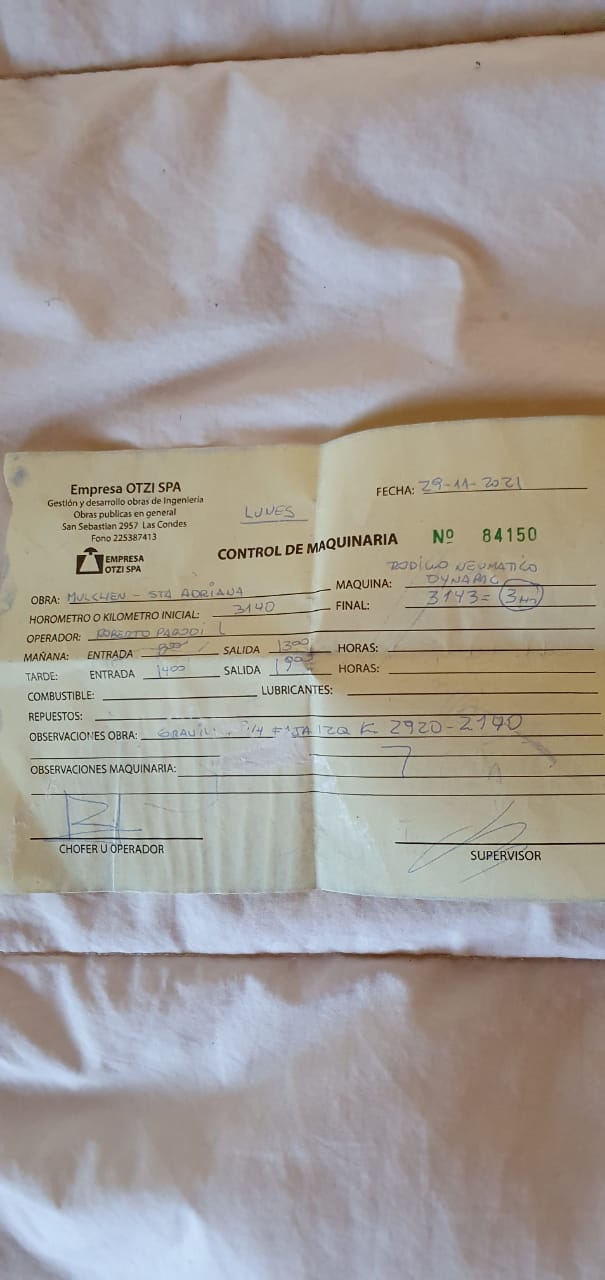 Empresa OTZI SPA
Gestión y desarrollo obras de Ingeniería
Obras publicas en general
San Sebastian 2957 Las Condes
Fono 225387413
EMPRESA
OTZI SPA
LUNES
FECHA: 29-11-2021
CONTROL DE MAQUINARIA Nº 84150
OBRA: MULCHEN - STA ADRIANA
MAQUINA: RODILLO NEUMATICO
DYNAPAC
HOROMETRO O KILOMETRO INICIAL: 3140
FINAL: 3143 = 3 Hrs
OPERADOR: ROBERTO PARODI L
MAÑANA: ENTRADA 800 SALIDA 1300 HORAS:
TARDE: ENTRADA 1400 SALIDA 1900 HORAS:
COMBUSTIBLE: LUBRICANTES:
REPUESTOS:
OBSERVACIONES OBRA: 3/4 FAJA IZQ K 2920-2140
OBSERVACIONES MAQUINARIA:
CHOFER U OPERADOR
SUPERVISOR